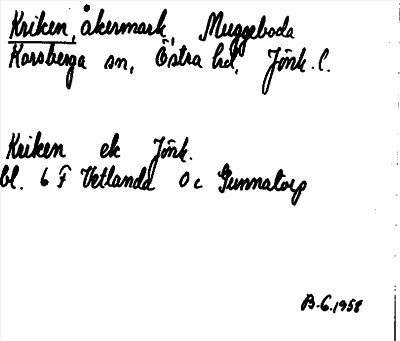 Kriken, åkermark, Muggeboda
Korsberga sn, Östra hd, Jönk. l.
Kriken ek Jönk.
bl. 6 F Vetlanda 0 c Gunnatorp
B-G.1958